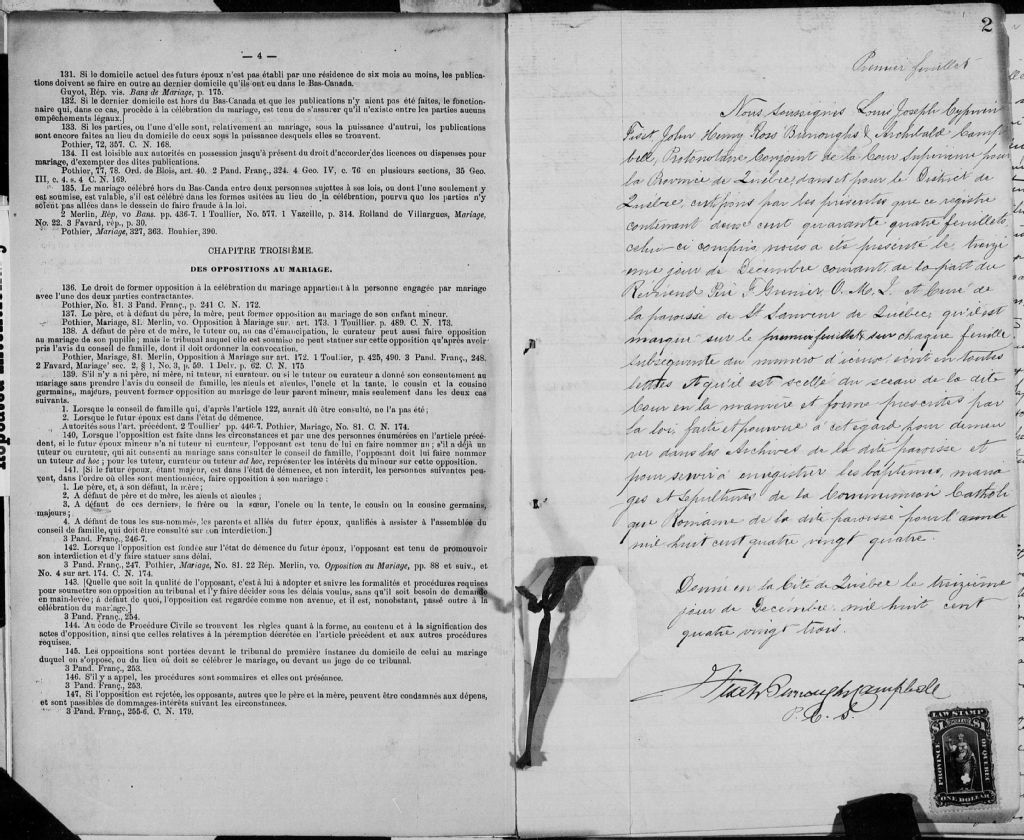 — 4 —
131. Si le domicile actuel des futurs époux n'est pas établi par une résidence de six mois au moins, les publica-
tions doivent se faire en outre au dernier domicile qu'ils ont eu dans le Bas-Canada.
Guyot, Rép. vis. Bans de Mariage, p. 175.
132. Si le dernier domicile est hors du Bas-Canada et que les publications n'y aient pas été faites, le fonction-
naire qui, dans ce cas, procède à la célébration du mariage, est tenu de s'assurer qu'il n'existe entre les parties aucuns
empêchements légaux.]
133. Si les parties, ou l'une d'elle sont, relativement au mariage, sous la puissance d'autrui, les publications
sont encore faites au lieu du domicile de ceux sous la puissance desquels elles se trouvent.
Pothier, 72, 357. C. N. 168.
134. Il est loisible aux autorités en possession jusqu'à présent du droit d'accorder des licences ou dispenses pour
mariage, d'exempter des dites publications.
Pothier, 77, 78. Ord. de Blois, art. 40. 2 Pand. Franç., 324. 4 Geo. IV, c. 76 en plusieurs sections, 35 Geo.
III, c. 4. s. 4 C. N. 169.
135. Le mariage célébré hors du Bas-Canda entre deux personnes sujettes à ses lois, ou dont l'une seulement y
est soumise, est valable, s'il est célébré dans les formes usitées au lieu de la célébration, pourvu que les parties n'y
soient pas allées dans le dessein de faire fraude à la loi.
2 Merlin, Rép, vo Bans. pp. 436-7. 1 Toullier, No. 577. 1 Vazeille, p. 314. Rolland de Villargues, Mariage,
No. 22. 3 Favard, rép., p. 30.
Pothier, Mariage, 327, 363. Bouhier, 390.
CHAPITRE TROISIÈME.
DES OPPOSITIONS AU MARIAGE.
136. Le droit de former opposition à la célébration du mariage appartient à la personne engagée par mariage
avec l'une des deux parties contractantes.
Pothier, No. 81. 3 Pand. Franç., p. 241 C. N. 172.
137. Le père, et à défaut du père, la mère, peut former opposition au mariage de son enfant mineur.
Pothier, Mariage, 81. Merlin, vo. Opposition à Mariage sur. art. 173. 1 Touillier p. 489. C. N. 173.
138. A défaut de père et de mère, le tuteur ou, au cas d'émancipation, le curateur peut aussi faire opposition
au mariage de son pupille; mais le tribunal auquel elle est soumise ne peut statuer sur cette opposition qu'après avoir
pris l'avis du conseil de famille, dont il doit ordonner la convocation.
Pothier, Mariage, 81. Merlin, Opposition à Mariage sur art. 172. 1 Toullier, p. 425, 490. 3 Pand. Franç., 248.
2 Favard, Mariage' sec. 2, § 1, No. 3, p. 59. 1 Delv. p. 62. C. N. 175
139. S'il n'y a ni père, ni mère, ni tuteur, ni curateur, ou si le tuteur ou curateur a donné son consentement au
mariage sans prendre l'avis du conseil de famille, les aïeuls et aïeules, l'oncle et la tante, le cousin et la cousine
germains,, majeurs, peuvent former opposition au mariage de leur parent mineur, mais seulement dans les deux cas
suivants.
1. Lorsque le conseil de famille qui, d'après l'article 122, aurait dû être consulté, ne l'a pas été;
2. Lorsque le futur époux est dans l'état de démence.
Autorités sous l'art. précédent. 2 Toullier' pp. 446-7. Pothier, Mariage, No. 81. C. N. 174.
140. Lorsque l'opposition est faite dans les circonstances et par une des personnes énumérées en l'article précé-
dent, si le futur époux mineur n'a ni tuteur ni curateur, l'opposant est tenu de lui en faire nommer un; s'il a déjà un
tuteur ou curateur, qui ait consenti au mariage sans consulter le conseil de famille, l'opposant doit lui faire nommer
un tuteur ad hoc; pour les tuteur, curateur ou tuteur ad hoc, représenter les intérêts du mineur sur cette opposition.
141. [Si le futur époux, étant majeur, est dans l'état de démence, et non interdit, les personnes suivantes peu-
vent, dans l'ordre où elles sont mentionnées, faire opposition à son mariage:
1. Le père, et, à son défaut, la mère;
2. A défaut de père et de mère, les aïeuls et aïeules;
3. A défaut de ces derniers, le frère ou la sœur, l'oncle ou la tente, le cousin ou la cousine germains,
majeurs;
4. A défaut de tous les sus-nommés, les parents et alliés du futur époux, qualifiés à assister à l'assemblée du
conseil de famille, qui doit être consulté sur son interdiction.]
3 Pand. Franç., 246-7.
142. Lorsque l'opposition est fondée sur l'état de démence du futur époux, l'opposant est tenu de promouvoir
son interdiction et d'y faire statuer sans délai.
3 Pand. Franç., 247. Pothier, Mariage, No. 81. 22 Rép. Merlin, vo. Opposition au Mariage, pp. 88 et suiv., et
No. 4 sur art. 174. C. N. 174.
143. [Quelque que soit la qualité de l'opposant, c'est à lui à adopter et suivre les formalités et procédures requises
pour soumettre son opposition au tribunal et l'y faire décider sous les délais voulus, sans qu'il soit besoin de demande
en main-levée; à défaut de quoi, l'opposition est regardée comme non avenue, et il est, nonobstant, passé outre à la
célébration du mariage.]
3 Pand. Franç., 254.
144. Au code de Procédure Civile se trouvent les règles quant à la forme, au contenu et à la signification des
actes d'opposition, ainsi que celles relatives à la péremption décrétée en l'article précédent et aux autres procédures
requises.
145. Les oppositions sont portées devant le tribunal de première instance du domicile de celui au mariage
duquel on s'oppose, ou du lieu où doit se célébrer le mariage, ou devant un juge de ce tribunal.
3 Pand. Franç., 253.
146. S'il y a appel, les procédures sont sommaires et elles ont préséance.
3 Pand. Franç., 253.
147. Si l'opposition est rejetée, les opposants, autres que le père et la mère, peuvent être condamnés aux dépens,
et sont passibles de dommages-intérêts suivant les circonstances.
3 Pand. Franç., 255-6. C. N. 179.
2
Premier feuillet
Nous soussignés Louis Joseph Cyprien
Fiset, John Henry Ross Burroughs & Archibald Camp
bell, Protonotaire Conjoint de la Cour Supérieure pour
la Province de Québec, dans et pour le District de
Québec, certifions par les présentes que ce registre
contenant deux cent quarante quatre feuillets
celui-ci compris, nous a été présenté le treizi
ème jour de Décembre courant, de la part du
Révérend Père F. Grenier O. M. I. et Curé de
la paroisse de St Sauveur de Québec, qu'il est
marqué sur le premier feuillet & sur chaque feuillet
subséquent du numéro d'icelui, écrit en toutes
lettres et qu'il est scellé du sceau de la dite
Cour en la manière et forme prescrites par
la loi, faite et pourvue à cet égard pour demeu
rer dans les Archives de la dite paroisse et
pour servir à enregistrer les baptêmes, maria
ges et Sépultures de la Communion Catholi
que Romaine de la dite paroisse pour l'année
mil huit cent quatre vingt quatre.
Donné en la Cité de Québec le treizième
jour de Décembre mil huit cent
quatre vingt trois.
Fiset Burroughs Campbell
P. C. S.
LAW STAMP
$1 DOLLAR $1
PROVINCE OF QUEBEC
ONE DOLLAR